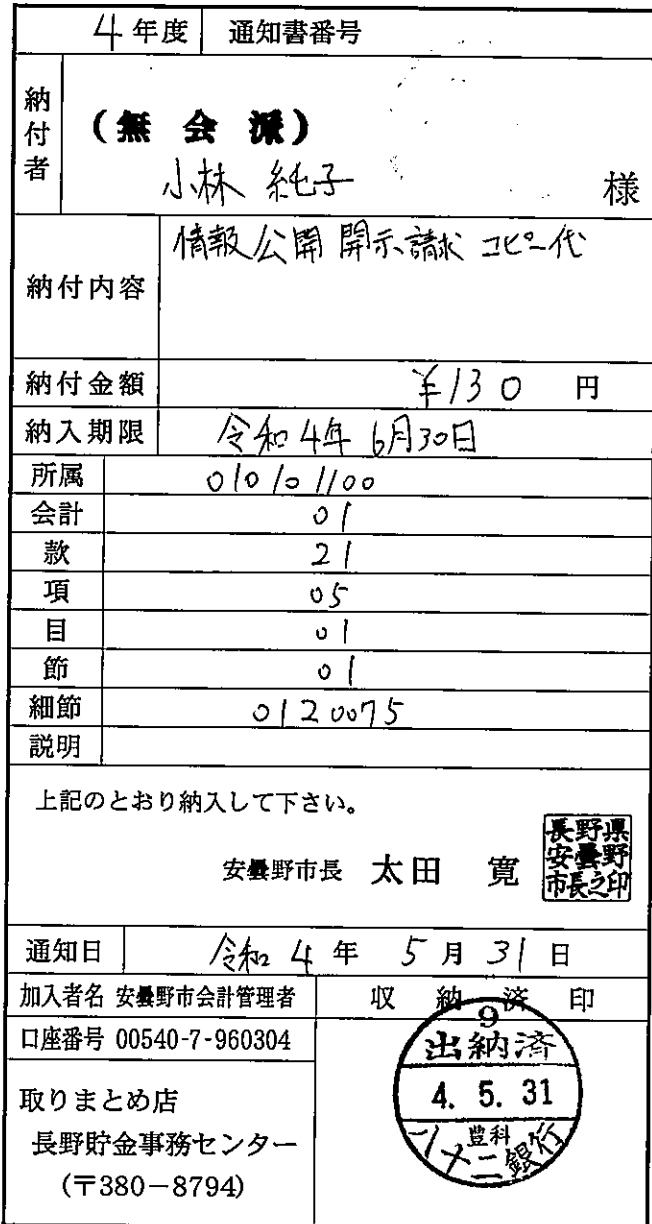 4年度 通知書番号
納付者
(無会派)
小林 純子 様
納付内容 情報公開 開示請求 コピー代
納付金額 ¥130 円
納入期限 令和4年 6月30日
所属 010101100
会計 01
款 21
項 05
目 01
節 01
細節 0120075
説明
上記のとおり納入して下さい。
安曇野市長 太田 寛
長野県
安曇野
市長之印
通知日 令和 4 年 5 月 31 日
加入者名 安曇野市会計管理者
口座番号 00540-7-960304
取りまとめ店
長野貯金事務センター
(〒380-8794)
収納済印
9
出納済
4. 5. 31
豊科
八十二銀行